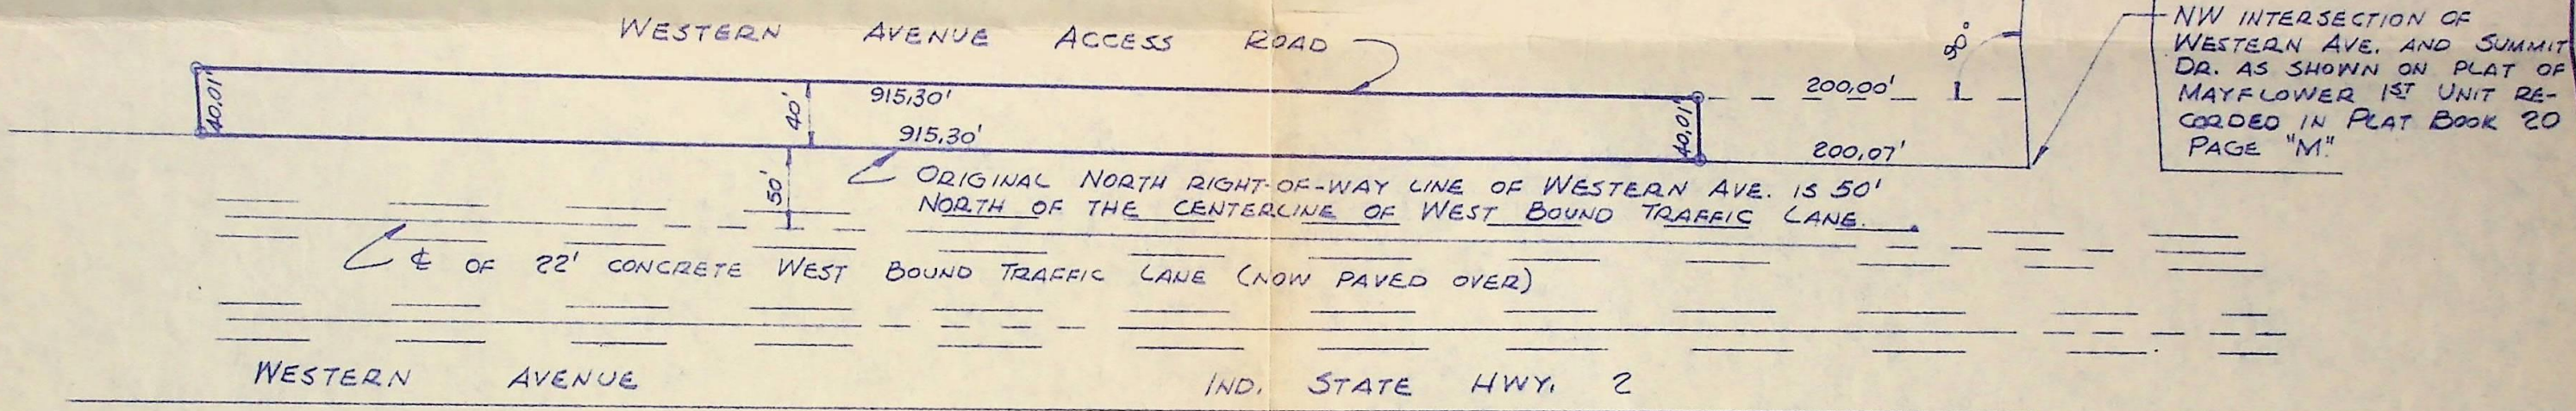 WESTERN AVENUE ACCESS ROAD
NW INTERSECTION OF
WESTERN AVE. AND SUMMIT
DR. AS SHOWN ON PLAT OF
MAYFLOWER 1ST UNIT RE-
CORDED IN PLAT BOOK 20
PAGE "M"
90°
40.01'
40'
915.30'
915.30'
40.01'
200.00'
200.07'
50'
ORIGINAL NORTH RIGHT-OF-WAY LINE OF WESTERN AVE. IS 50'
NORTH OF THE CENTERLINE OF WEST BOUND TRAFFIC LANE.
℄ OF 22' CONCRETE WEST BOUND TRAFFIC LANE (NOW PAVED OVER)
WESTERN AVENUE IND. STATE HWY. 2